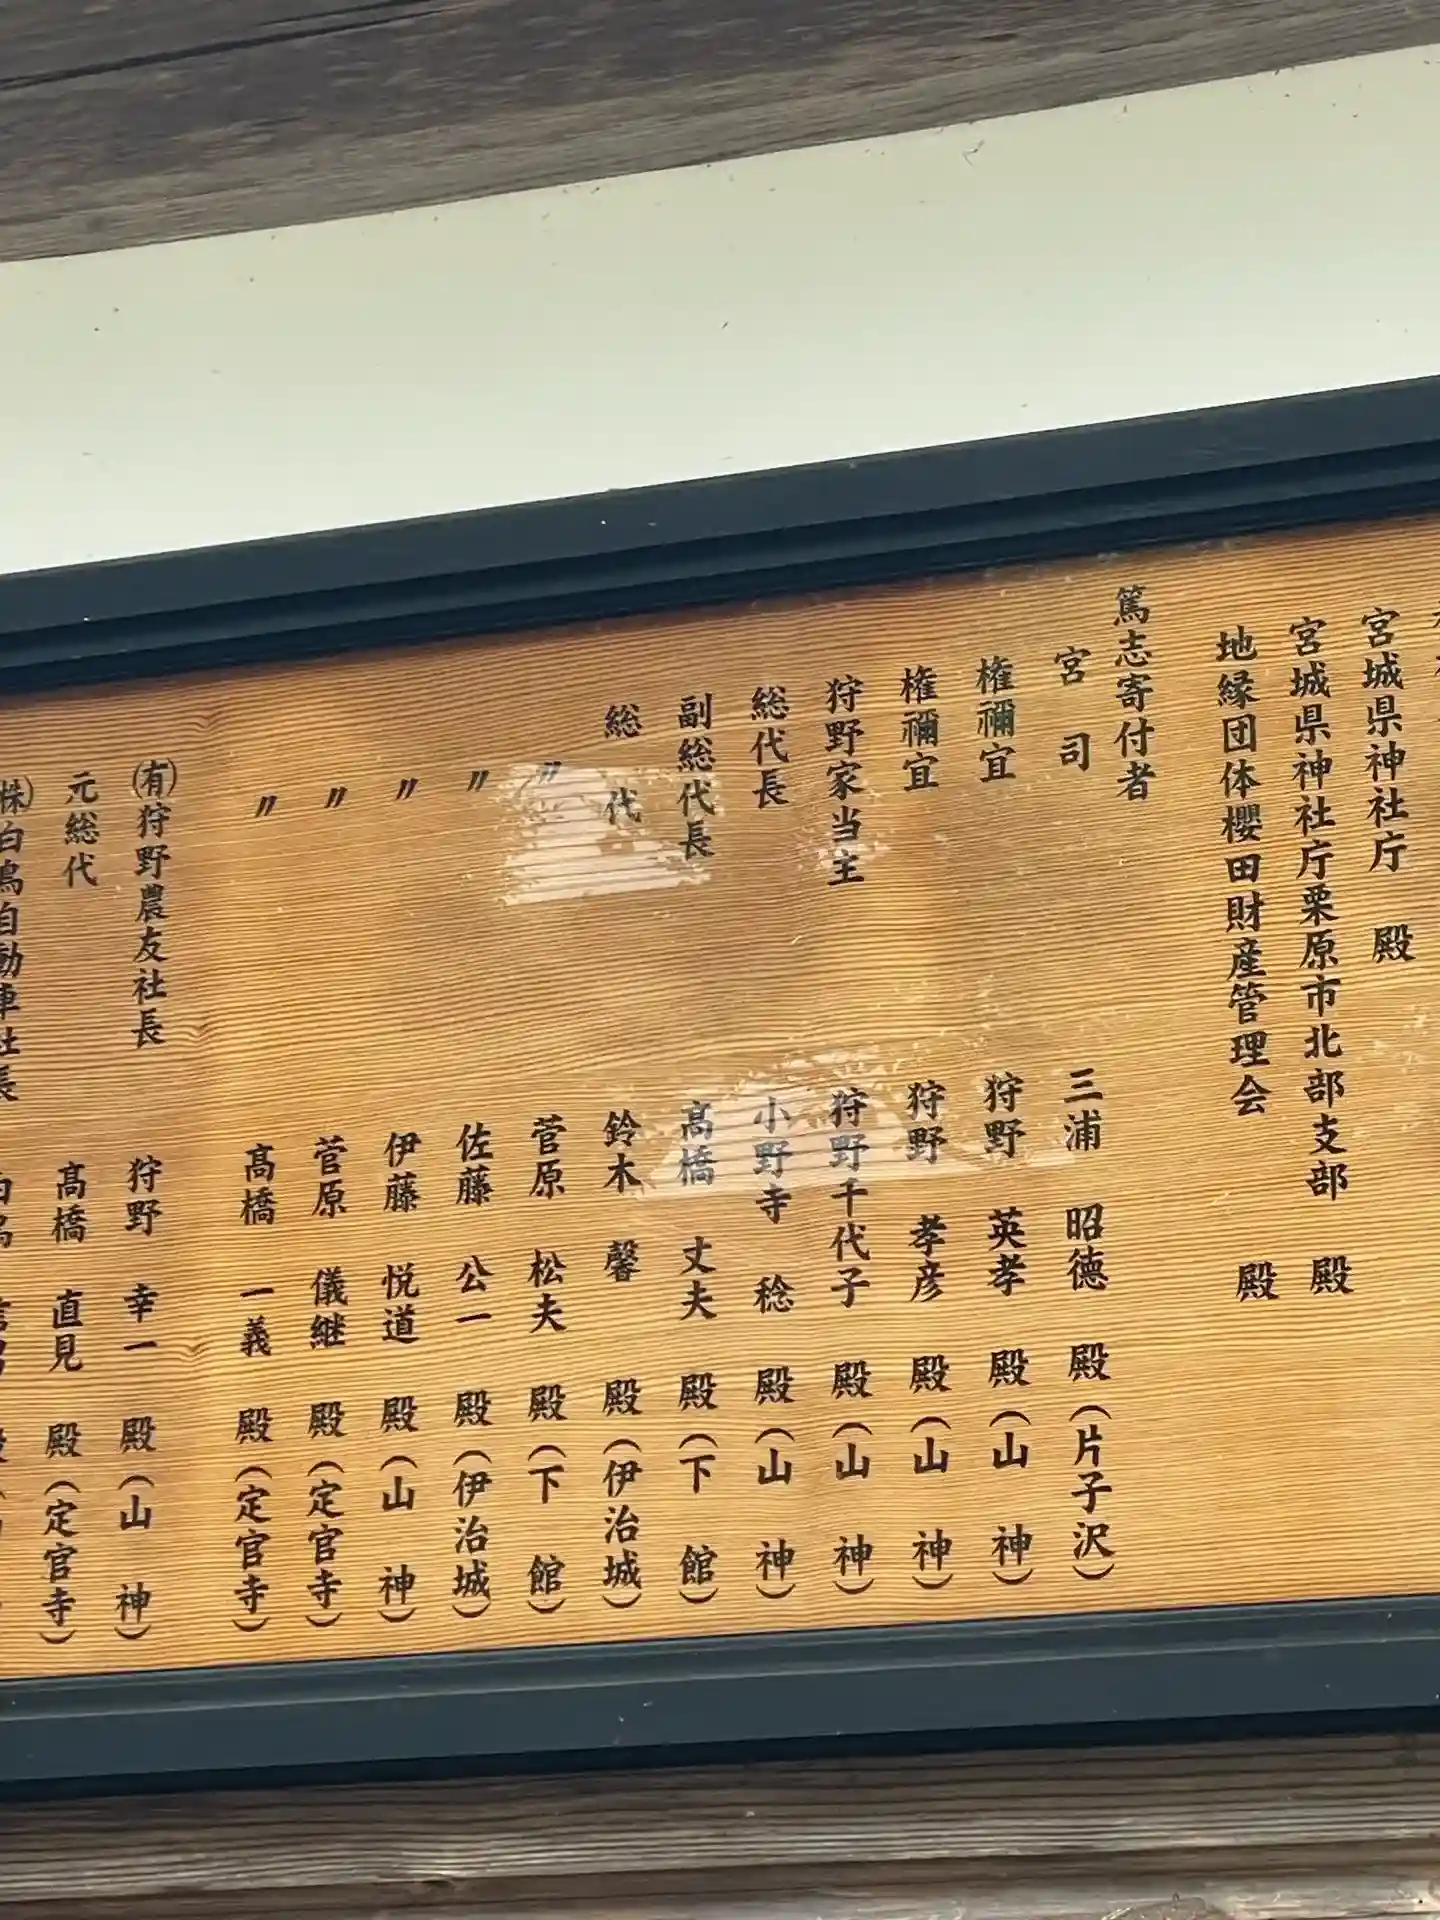 宮城県神社庁 殿
宮城県神社庁栗原市北部支部 殿
地縁団体櫻田財産管理会 殿
篤志寄付者
宮司 三浦 昭德 殿(片子沢)
権禰宜 狩野 英孝 殿(山神)
権禰宜 狩野 孝彦 殿(山神)
狩野家当主 狩野千代子 殿(山神)
総代長 小野寺 稔 殿(山神)
副総代長 髙橋 丈夫 殿(下館)
総代 鈴木 馨 殿(伊治城)
〃 菅原 松夫 殿(下館)
〃 佐藤 公一 殿(伊治城)
〃 伊藤 悦道 殿(山神)
〃 菅原 儀継 殿(定官寺)
〃 髙橋 一義 殿(定官寺)
㈲狩野農友社長 狩野 幸一 殿(山神)
元総代 髙橋 直見 殿(定官寺)
㈱白鳥自動車社長